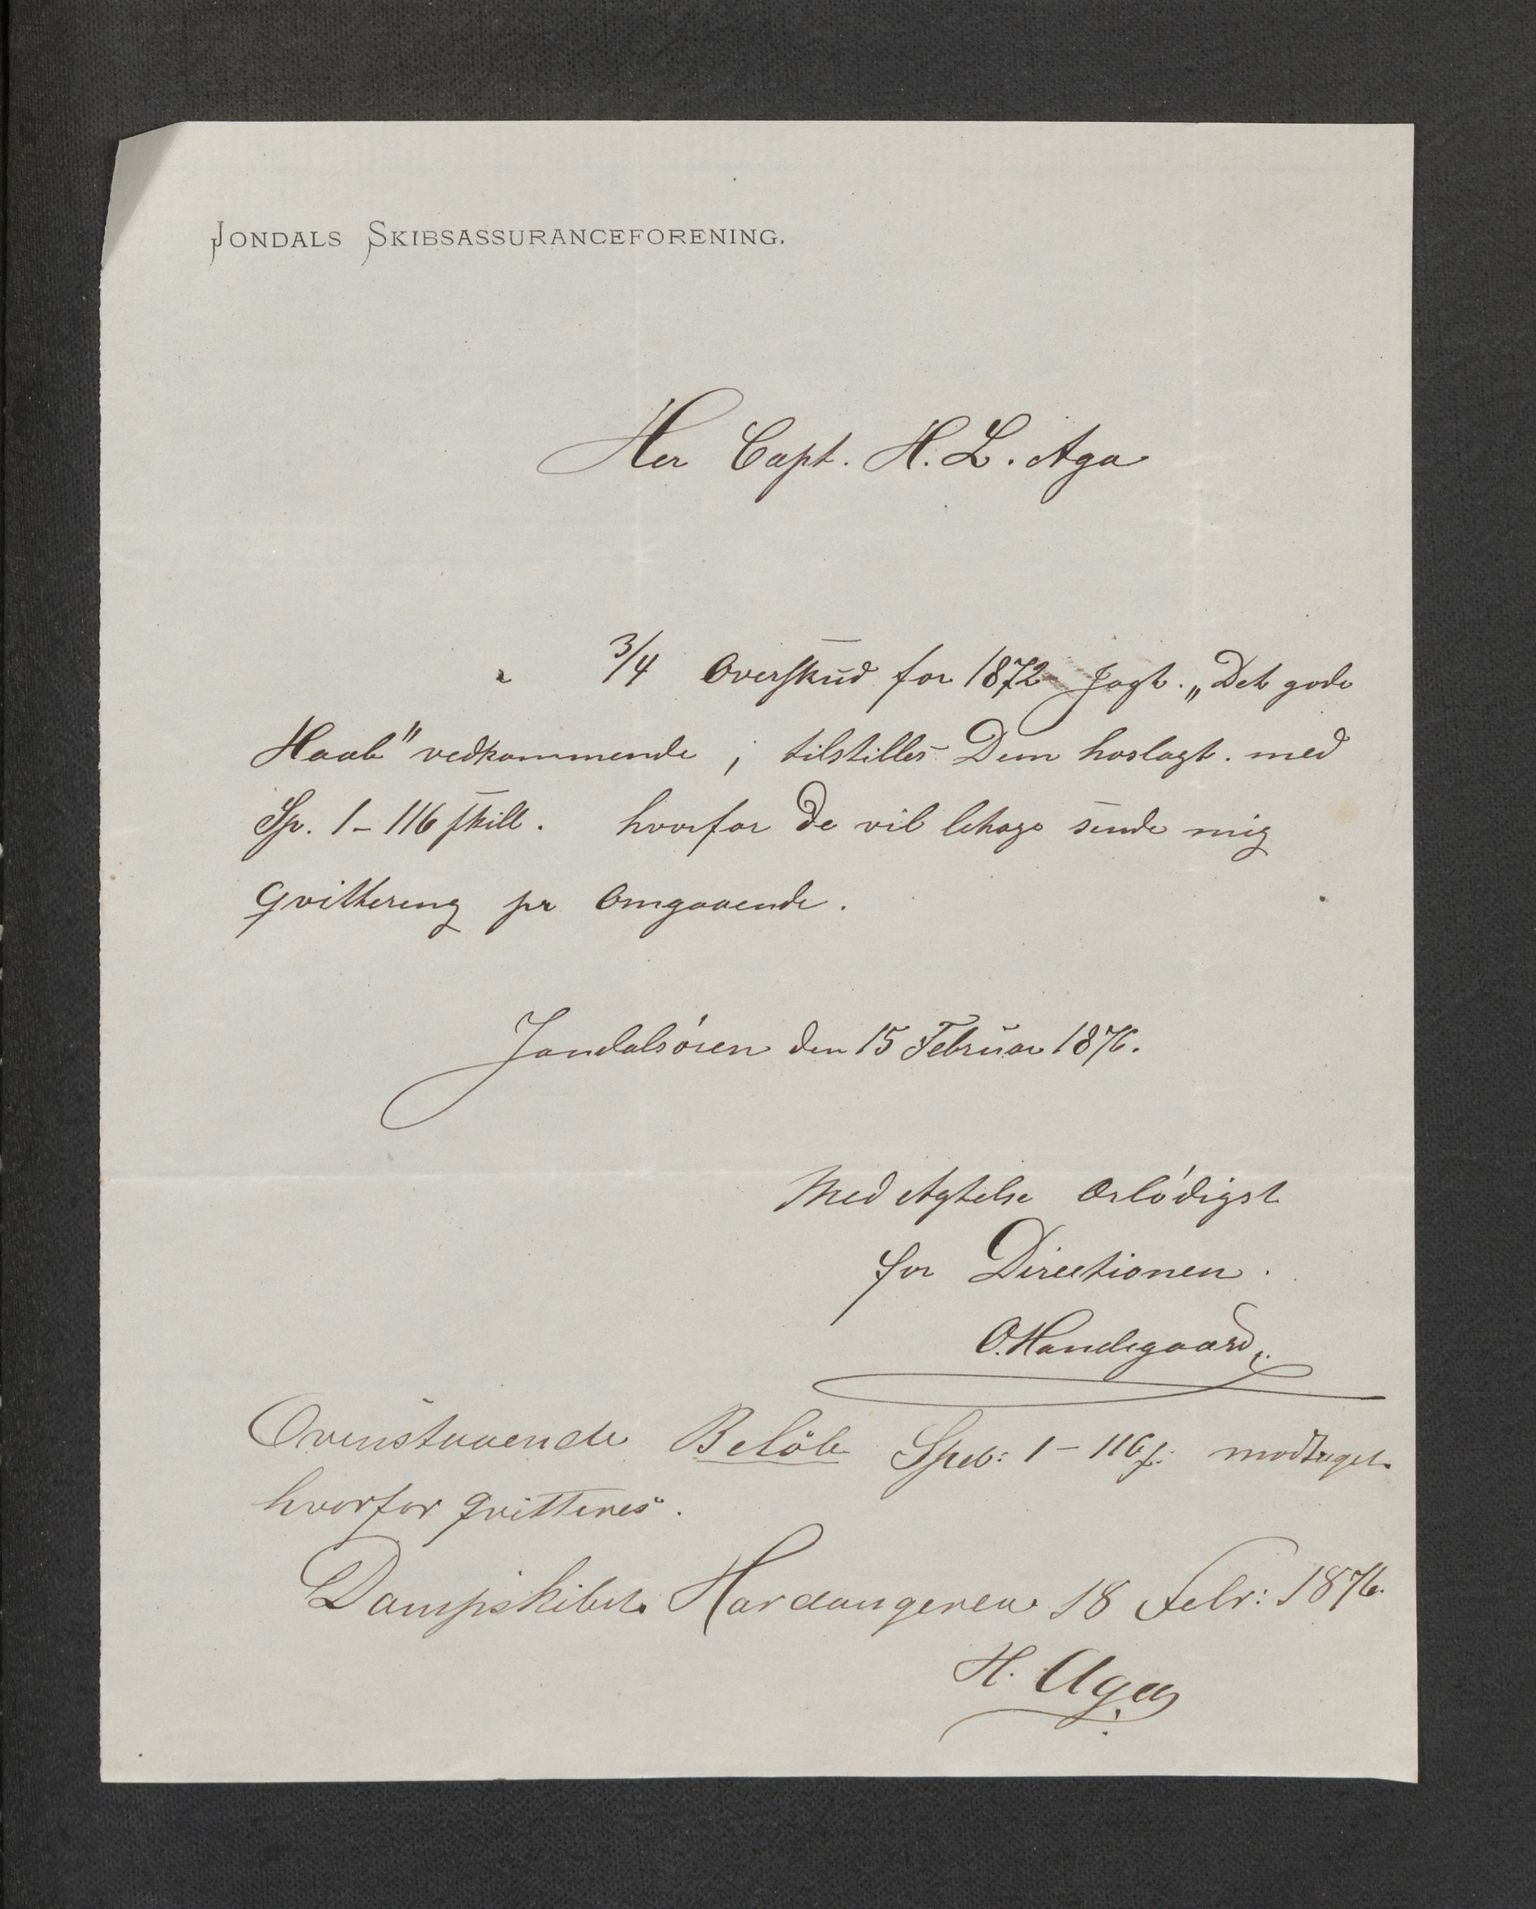 JONDALS SKIBSASSURANCEFORENING.
Her Capt. H. L. Aga
3/4 Overskud for 1872 Jagt. „Det gode
Haab" vedkommende, tilstilles Dem hoslagt. med
Sp. 1 - 116 skill. hvorfor De vil behage sende mig
Qvittering pr omgaaende.
Jondalsören den 15 Februar 1876.
Med Agtelse ærbödigst
for Directionen.
O. Handegaard.
Ovenstaaende Belöb Spd: 1 - 116 s: modtaget
hvorfor qvitteres.
Dampskibet Hardangeren 18 Febr: 1876
H. Aga